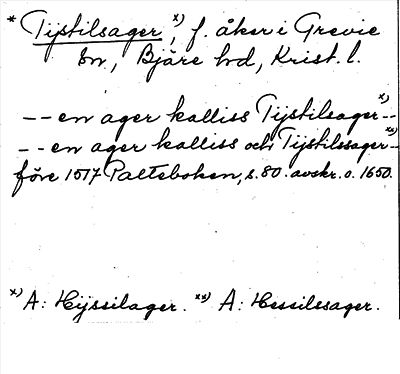 * Tijstilsager, x) f. åker i Grevie
sn., Bjäre hd, Krist. l.
-- en ager kalliss Tijstilsager x) --
-- en ager kalliss och Tijstilssager xx) --
före 1517 Palteboken, s. 80. avskr. o. 1650.
x) A: Hijssilager. xx) A: Hessilssager.